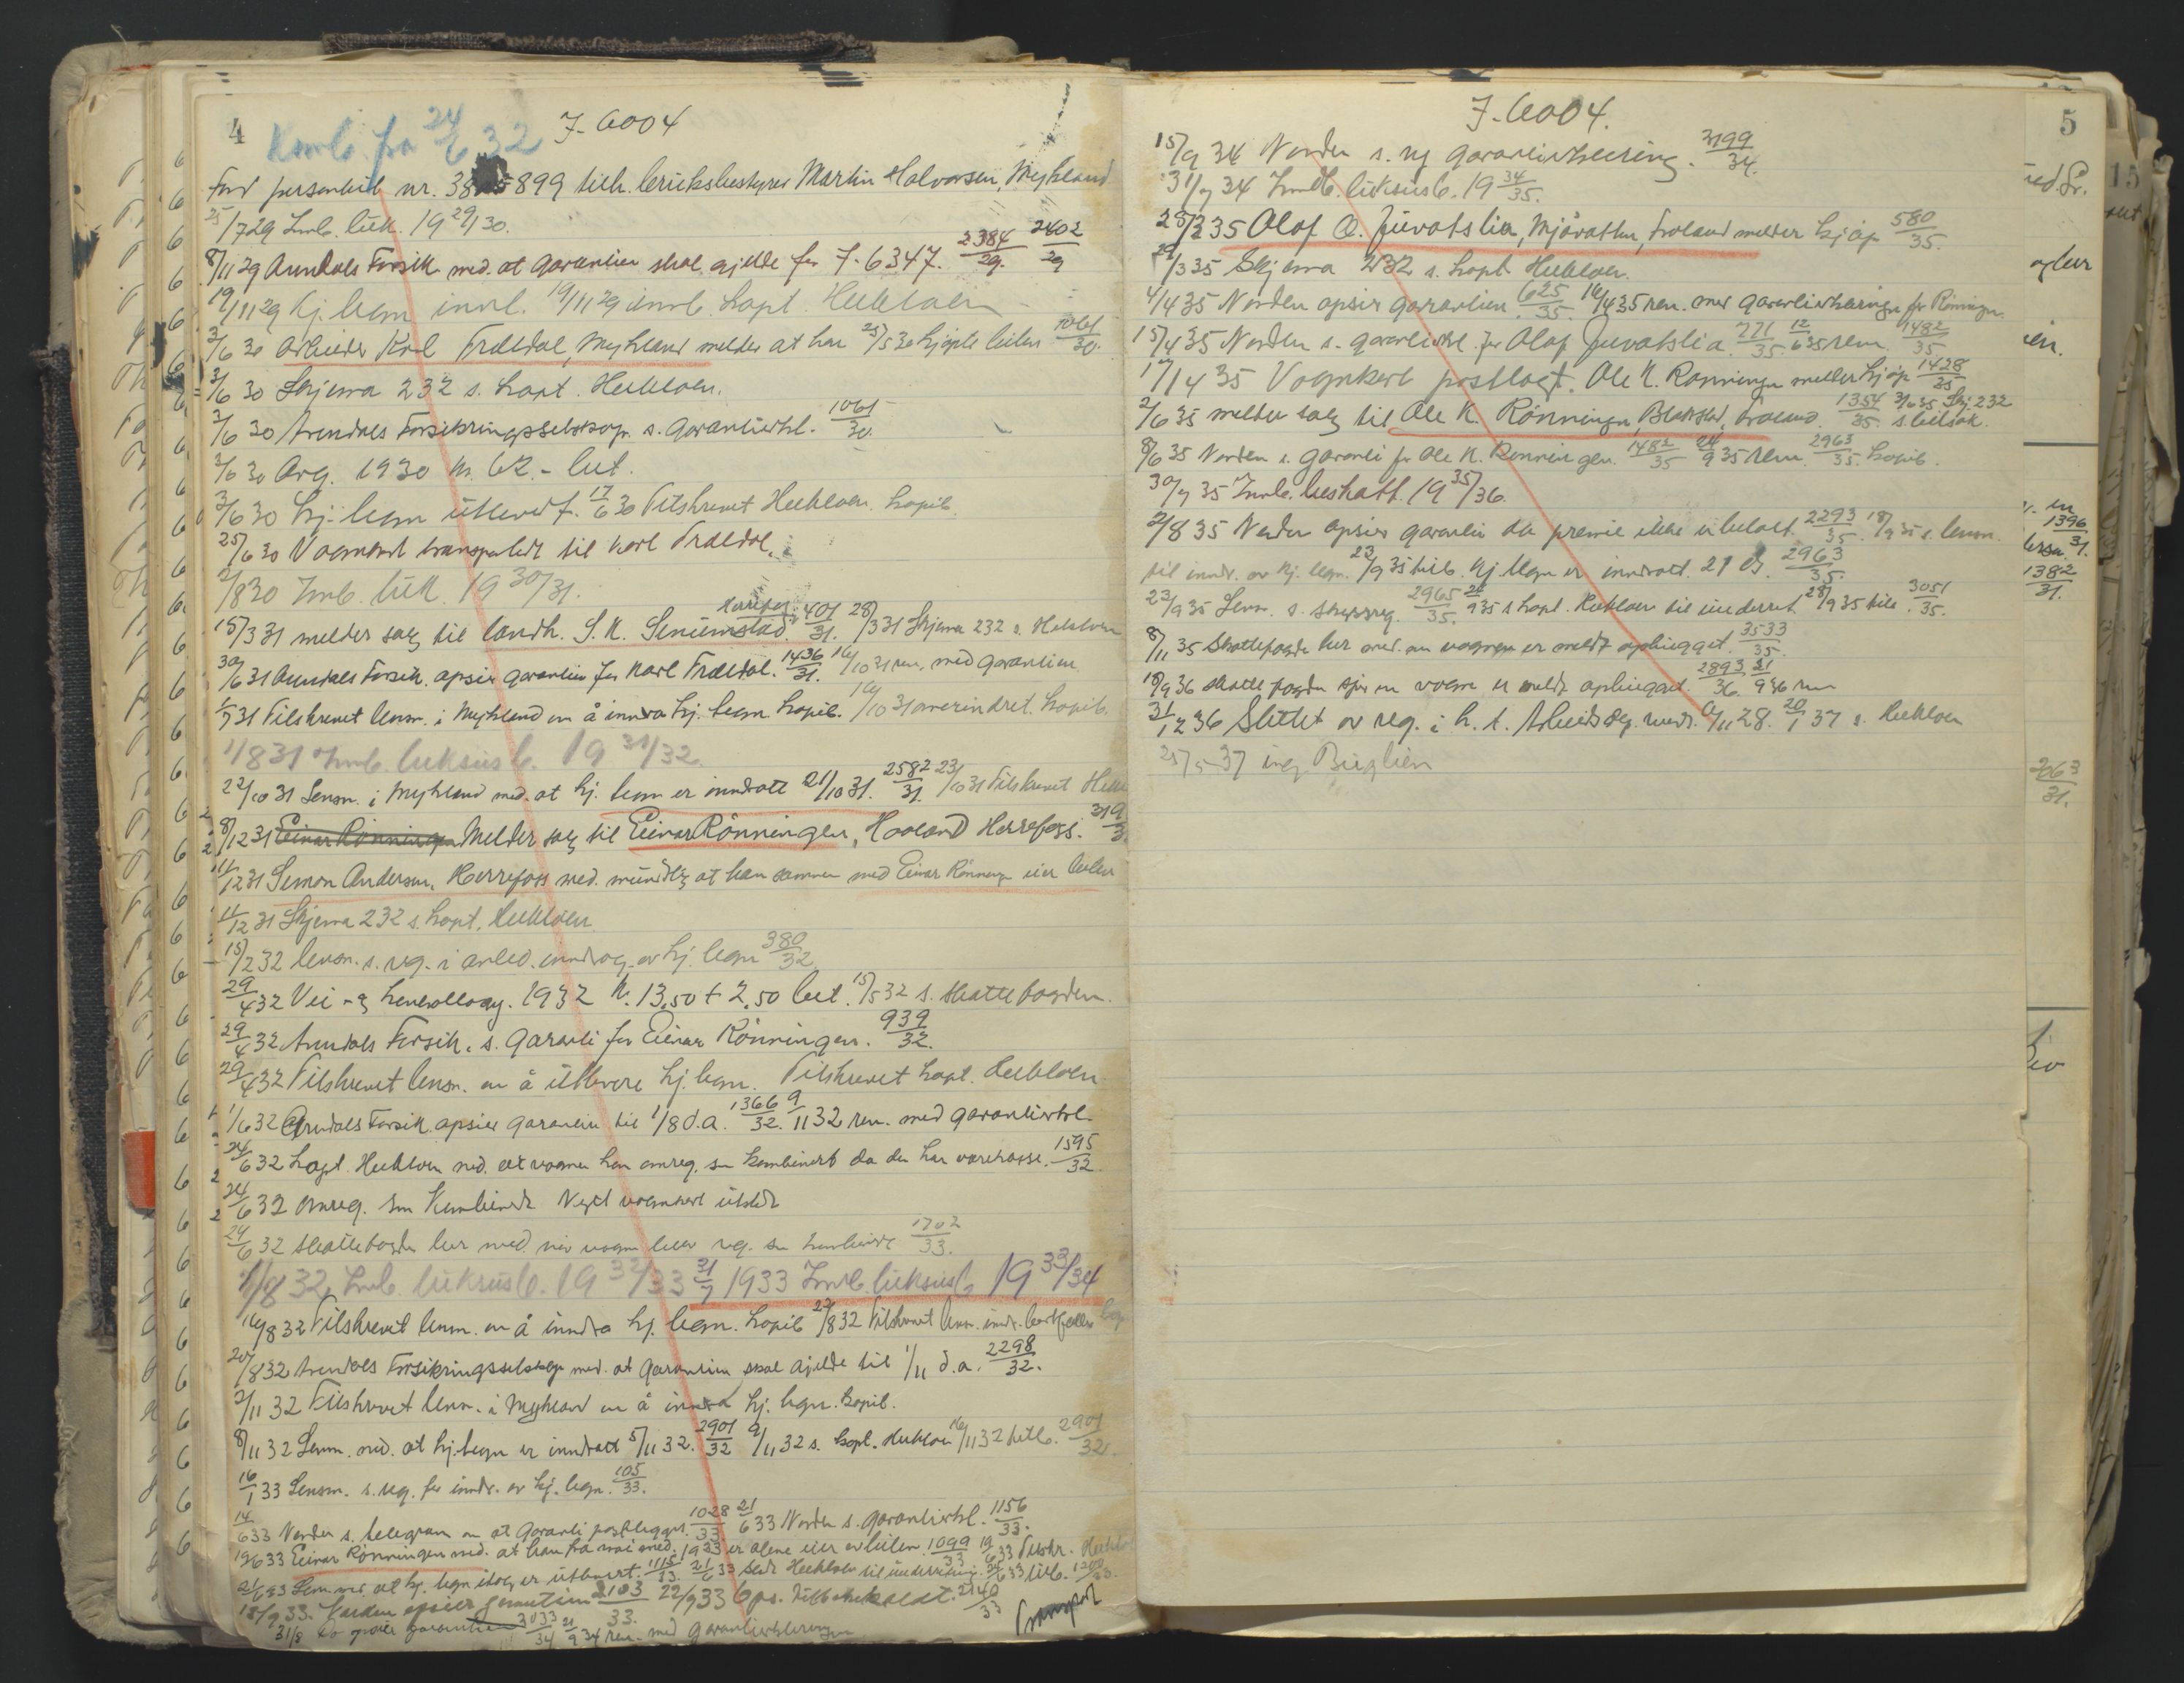 4
Komb. fra 24/6 32 I-6004
Ford personbil nr. 38 899 tilh. bruksbestyrer Martin Halvorsen, Mykland
25/7 29 Innb. luk. 19 29/30.
8/11 29 Arendals Forsik. med. at garantien skal gjelde for I-6347. 2384/29. 2402/29
19/11 29 Kj. legm innl. 19/11 29 innb. kapt. Heldaas
3/6 30 Arbeider Karl Fræidal, Mykland melder at han 25/5 30 kjøpte bilen 1061/30.
3/6 30 Skjema 232 s. kapt.
3/6 30 Arendals Forsikringsselskap s. garantierkl. 1061/30.
3/6 30 Avg. 1930 kr. 62.- bet.
3/6 30 Kj. legm utlevert. 17/6 30 Tilskrevet kopib.
25/6 30 Vognkort transportert til Karl
2/8 30 Innb. luk. 19 30/31.
15/3 31 melder salg til landh. S. K. Herrefoss 401/31. 28/3 31 Skjema 232 s.
30/6 31 Arendals Forsik. opsier garantien for Karl 1436/31. 16/10 31 ren. med garantien
1/7 31 Tilskrevet lensm. i Mykland om å inndra kj. legm kopib. 16/10 31 kopib.
1/8 31 Innb. luksusb. 19 31/32.
22/10 31 Lensm. i Mykland med. at kj. legm er inndratt 21/10 31. 2582/31. 23/10 31 Tilskrevet
8/12 31 Einar Rønningen Melder salg til Einar Rønningen, Herrefoss.
11/12 31 Simon Andersen, Herrefoss med. muntlig at han sammen med Einar Rønningen eier bilen
11/12 31 Skjema 232 s. kapt.
15/2 32 lensm. s. reg. i anled. inndrag. av kj. legm 380/32
29/4 32 Vei- og kontrollavg. 1932 kr. 13,50 + 2,50 bet. 15/5 32 s. skattefogden.
29/4 32 Arendals Forsik. s. garanti for Einar Rønningen. 939/32.
29/4 32 Tilskrevet lensm. om å utlevere kj. legm. Tilskrevet kapt.
1/6 32 Arendals Forsik. opsier garantien til 1/8 d.a. 1366/32. 9/11 32 ren. med garantierkl.
24/6 32 kapt. med. at vognen kan omreg. som kombinert da den har varekasse. 1595/32.
24/6 32 omreg. som Kombinert Nytt vognkort utstedt
24/6 32 skattefogden ber med. når vognen blev reg. som kombinert 1702/33.
1/8 32 Innb. luksusb. 19 32/33 31/7 1933 Innb. luksusb. 19 33/34
16/8 32 Tilskrevet lensm. om å inndra kj. legm. kopib 27/8 32 Tilskrevet lensm. inndr. bortfaller
20/8 32 Arendals Forsikringsselskap med. at garantien skal gjelde til 1/11 d.a. 2298/32.
2/11 32 Tilskrevet lensm. i Mykland om å inndra kj. legm. kopib.
8/11 32 Lensm. med. at kj. legm er inndratt 5/11 32. 2901/32 9/11 32 s. kapt. 16/11 32 tilb. 2901/32.
16/1 33 Lensm. s. reg. for inndr. av kj. legm. 105/33.
14/6 33 Norden s. telegram om at garanti postlegges. 1028/33. 21/6 33 Norden s. garantierkl. 1156/33.
19/6 33 Einar Rønningen med. at han fra mai med. 1933 er alene eier av bilen. 1099/33 19/6 33 Tilskr.
21/6 33 Lensm. med. at kj. legm idag er utlevert. 1115/33. 21/6 33 til underretning. 26/6 33 tilb.
18/9 33. Norden opsier garantien 2103/33. 22/9 33 Ops. tilbakekaldt. 2140/33
31/8 opsier garantien 3033/34 21/9 34 ren. med garantierklæringen
Transport
I-6004.
5
15/9 34 Norden s. ny garantierklæring. 3199/34.
31/7 34 Innb. luksusb. 19 34/35.
28/2 35 Olaf O. Juvatslia, Mjåvatten, Froland melder kjøp 580/35.
29/3 35 Skjema 232 s. kapt.
4/4 35 Norden opsier garantien. 625/35. 16/4 35 ren. med garantierklæringen for Rønningen.
15/4 35 Norden s. garantierkl. for Olaf Juvatslia 771/35. 12/6 35 ren. 1482/35
17/4 35 Vognkort postlagt. Ole K. Rønningen melder kjøp 1428/35
2/6 35 melder salg til Ole K. Rønningen, Blakstad, Froland. 1354/35. 3/6 35 Skj. 232 s. bilsak.
8/6 35 Norden s. garanti for Ole K. Rønningen. 1482/35 24/9 35 ren. 2963/35. kopib.
30/7 35 Innb. beskatt. 19 35/36.
2/8 35 Norden opsier garantien da premie ikke er betalt. 2293/35. 18/9 35 s. lensm.
til inndr. av kj. legm. 23/9 35 tilb. kj. legm er inndratt. 21 ds. 2963/35.
23/9 35 Lensm. s. 2965/35. 24/9 35 s. kapt. til underret. 28/9 35 tilb. 3051/35.
8/11 35 Skattefogden ber med. om vognen er meldt ophugget. 3533/35.
18/9 36 skattefogden spør om vogn er meldt ophugget. 2893/36. 21/9 36 ren
31/12 36 Slettet av reg. i h. t. Arbeidsdep. rundskr. 6/11 28. 20/1 37 s.
25/5 37 ing. Buglien
1396/31.
1382/31.
263/31.
15